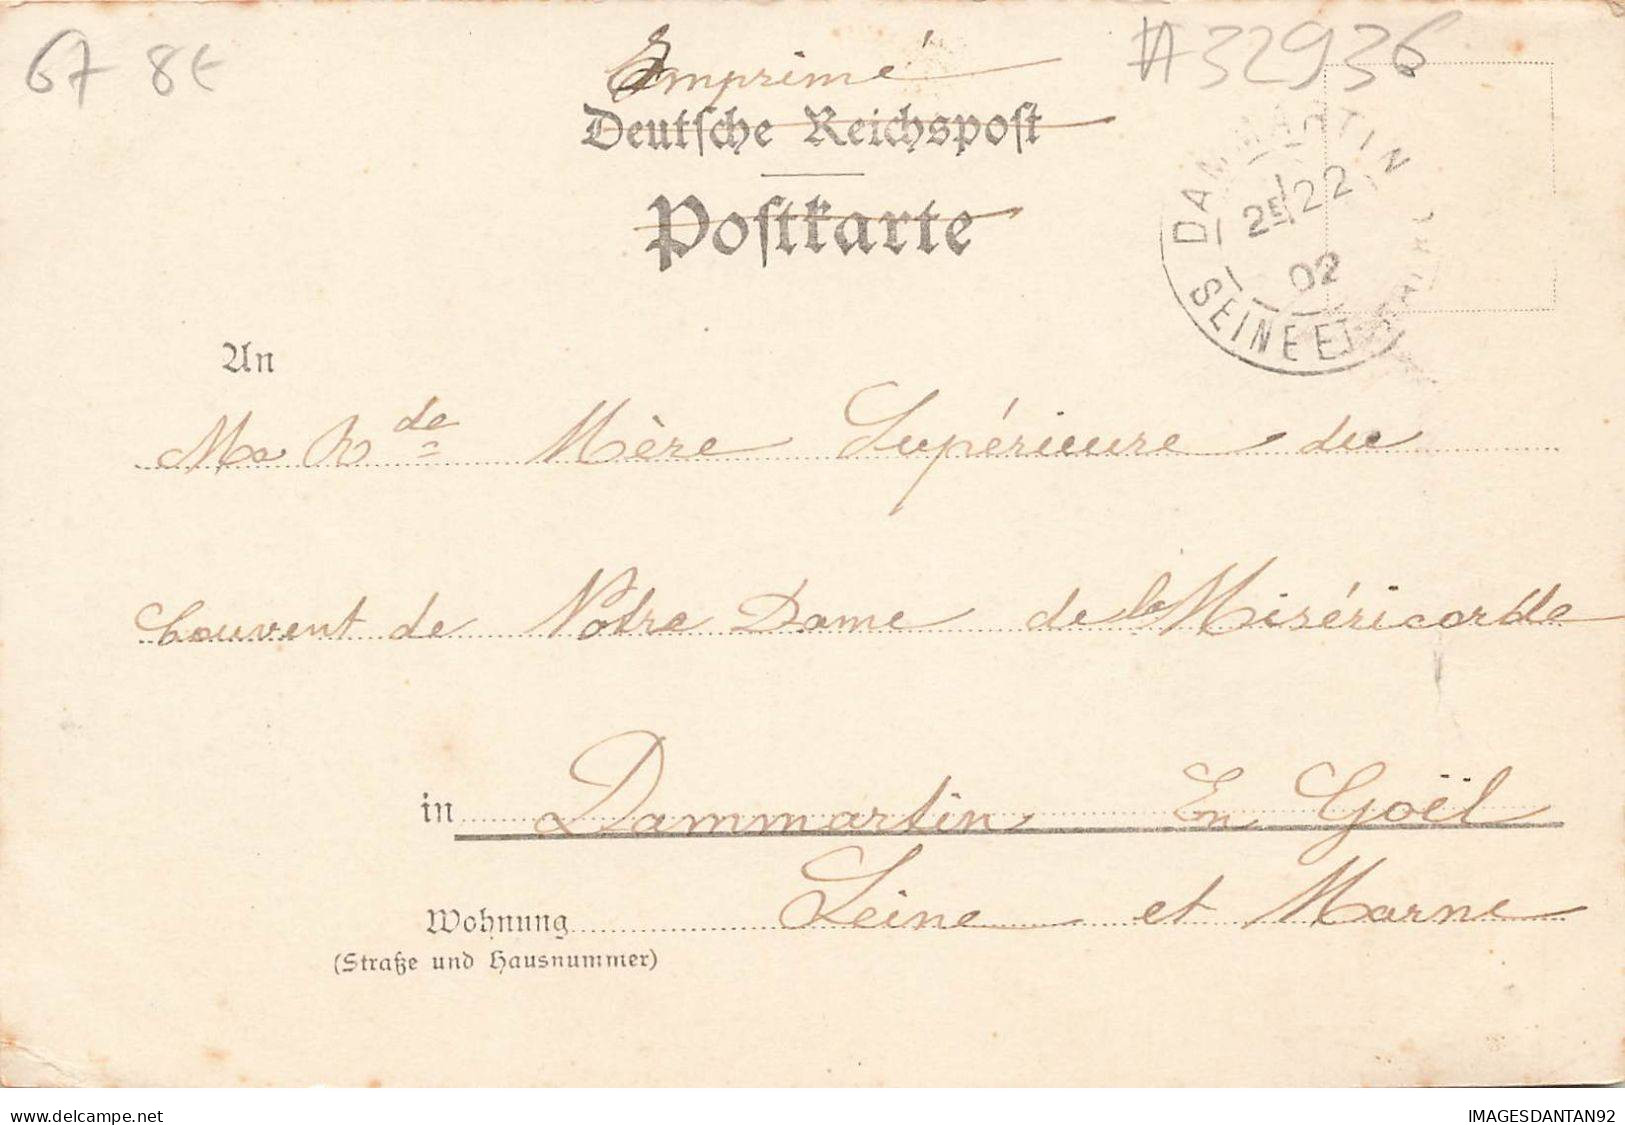 67 8€
#32936
Emprimé
Deutsche Reichspost
Postkarte
DAMMARTIN
2E 22
02
SEINE ET
An
Ma Rde Mère Supérieure du
Couvent de Notre Dame de la Miséricorde
in Dammartin En Goël
Wohnung Seine et Marne
(Straße und Hausnummer)
delcampe.net
IMAGESDANTAN92